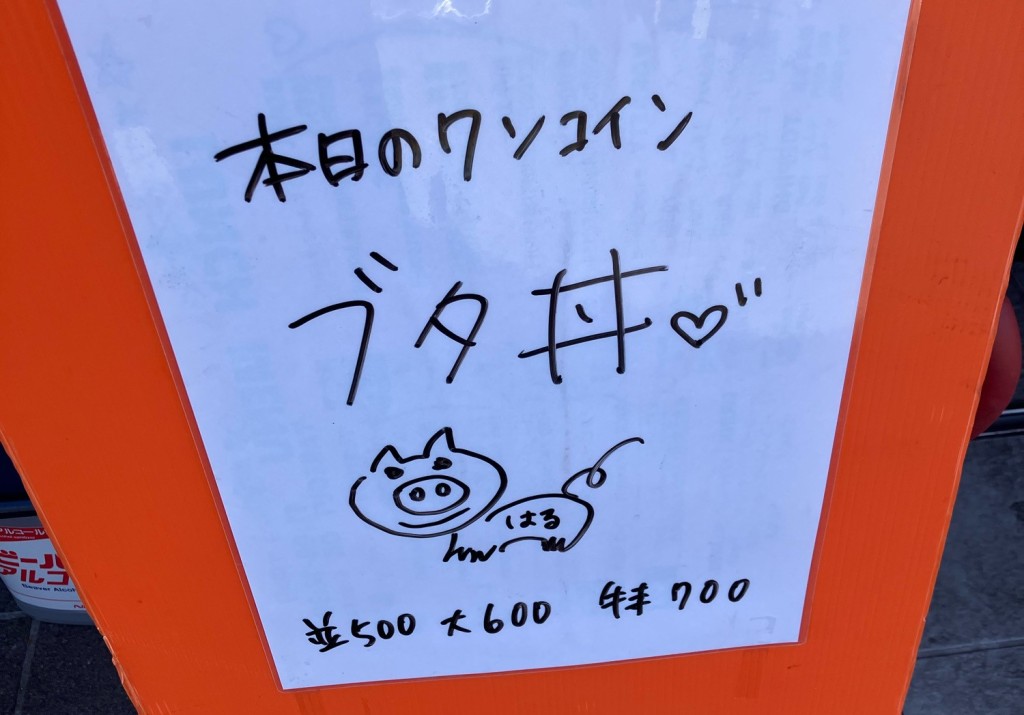 本日のワンコイン
ブタ丼♡
はる
並500 大600 特700
アルコール